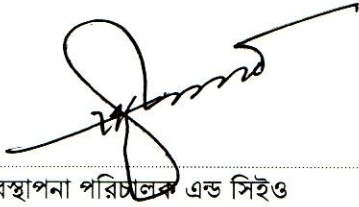 বস্থাপনা পরিচালক এন্ড সিইও